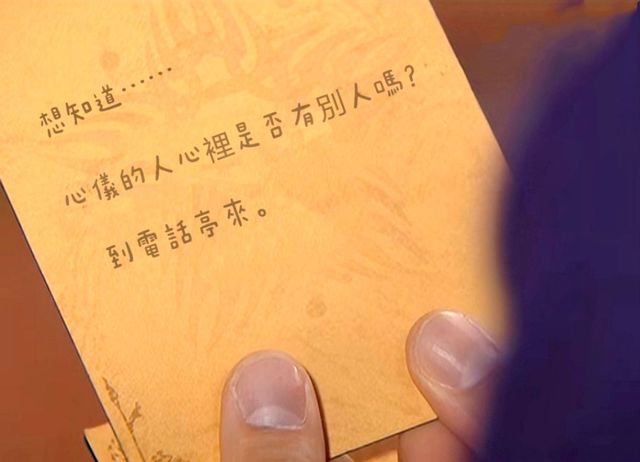 想知道……
心儀的人心裡是否有別人嗎?
到電話亭來。